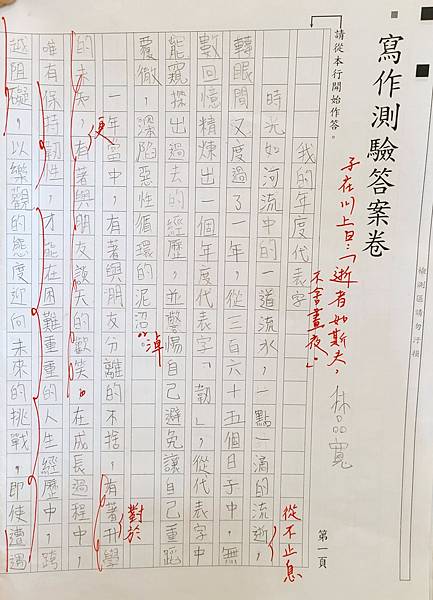 寫作測驗答案卷
檢測區請勿汙損
林品寬
子在川上曰：「逝者如斯夫，
不舍晝夜。」
請從本行開始作答。
第一頁
我的年度代表字
時光如河流中的一道流水，一點一滴的流逝，
從不止息
轉眼間又度過了一年，從三百六十五個日子中，無
數回憶精煉出一個年度代表字「韌」，從代表字中
能窺探出過去的經歷，並警惕自己避免讓自己重蹈
覆徹，深陷惡性循環的泥沼。
淖
一年當中，有著與朋友分離的不捨，有著升學
對於
的未知，有著與朋友談天的歡笑。在成長過程中，
更
唯有保持韌性，才能在困難重重的人生經歷中，跨
越阻礙，以樂觀的態度迎向未來的挑戰，即使遭遇